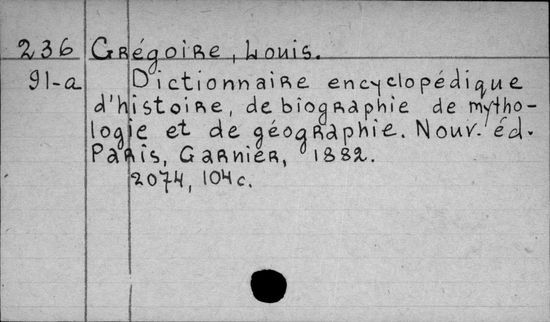 236 Grégoire, Louis.
91-a Dictionnaire encyclopédique
d'histoire, de biographie de mytho-
logie et de géographie. Nouv. éd.
Paris, Garnier, 1882.
2074, 104c.